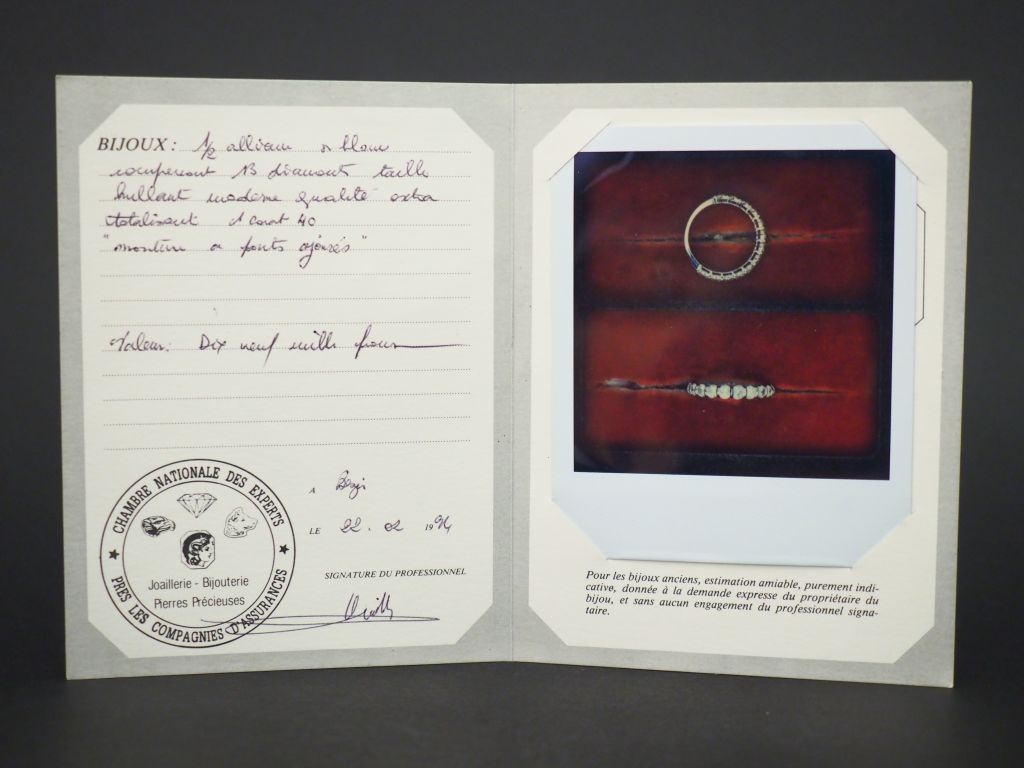 BIJOUX : 1/2 alliance or blanc
comprenant 13 diamants taille
brillant moderne qualité extra
totalisant 1 carat 40
"monture a ponts ajourés"
Valeur: Dix neuf mille francs
CHAMBRE NATIONALE DES EXPERTS
PRES LES COMPAGNIES D'ASSURANCES
Joaillerie - Bijouterie
Pierres Précieuses
A
LE 22.02 1994
SIGNATURE DU PROFESSIONNEL
Pour les bijoux anciens, estimation amiable, purement indi-
cative, donnée à la demande expresse du propriétaire du
bijou, et sans aucun engagement du professionnel signa-
taire.